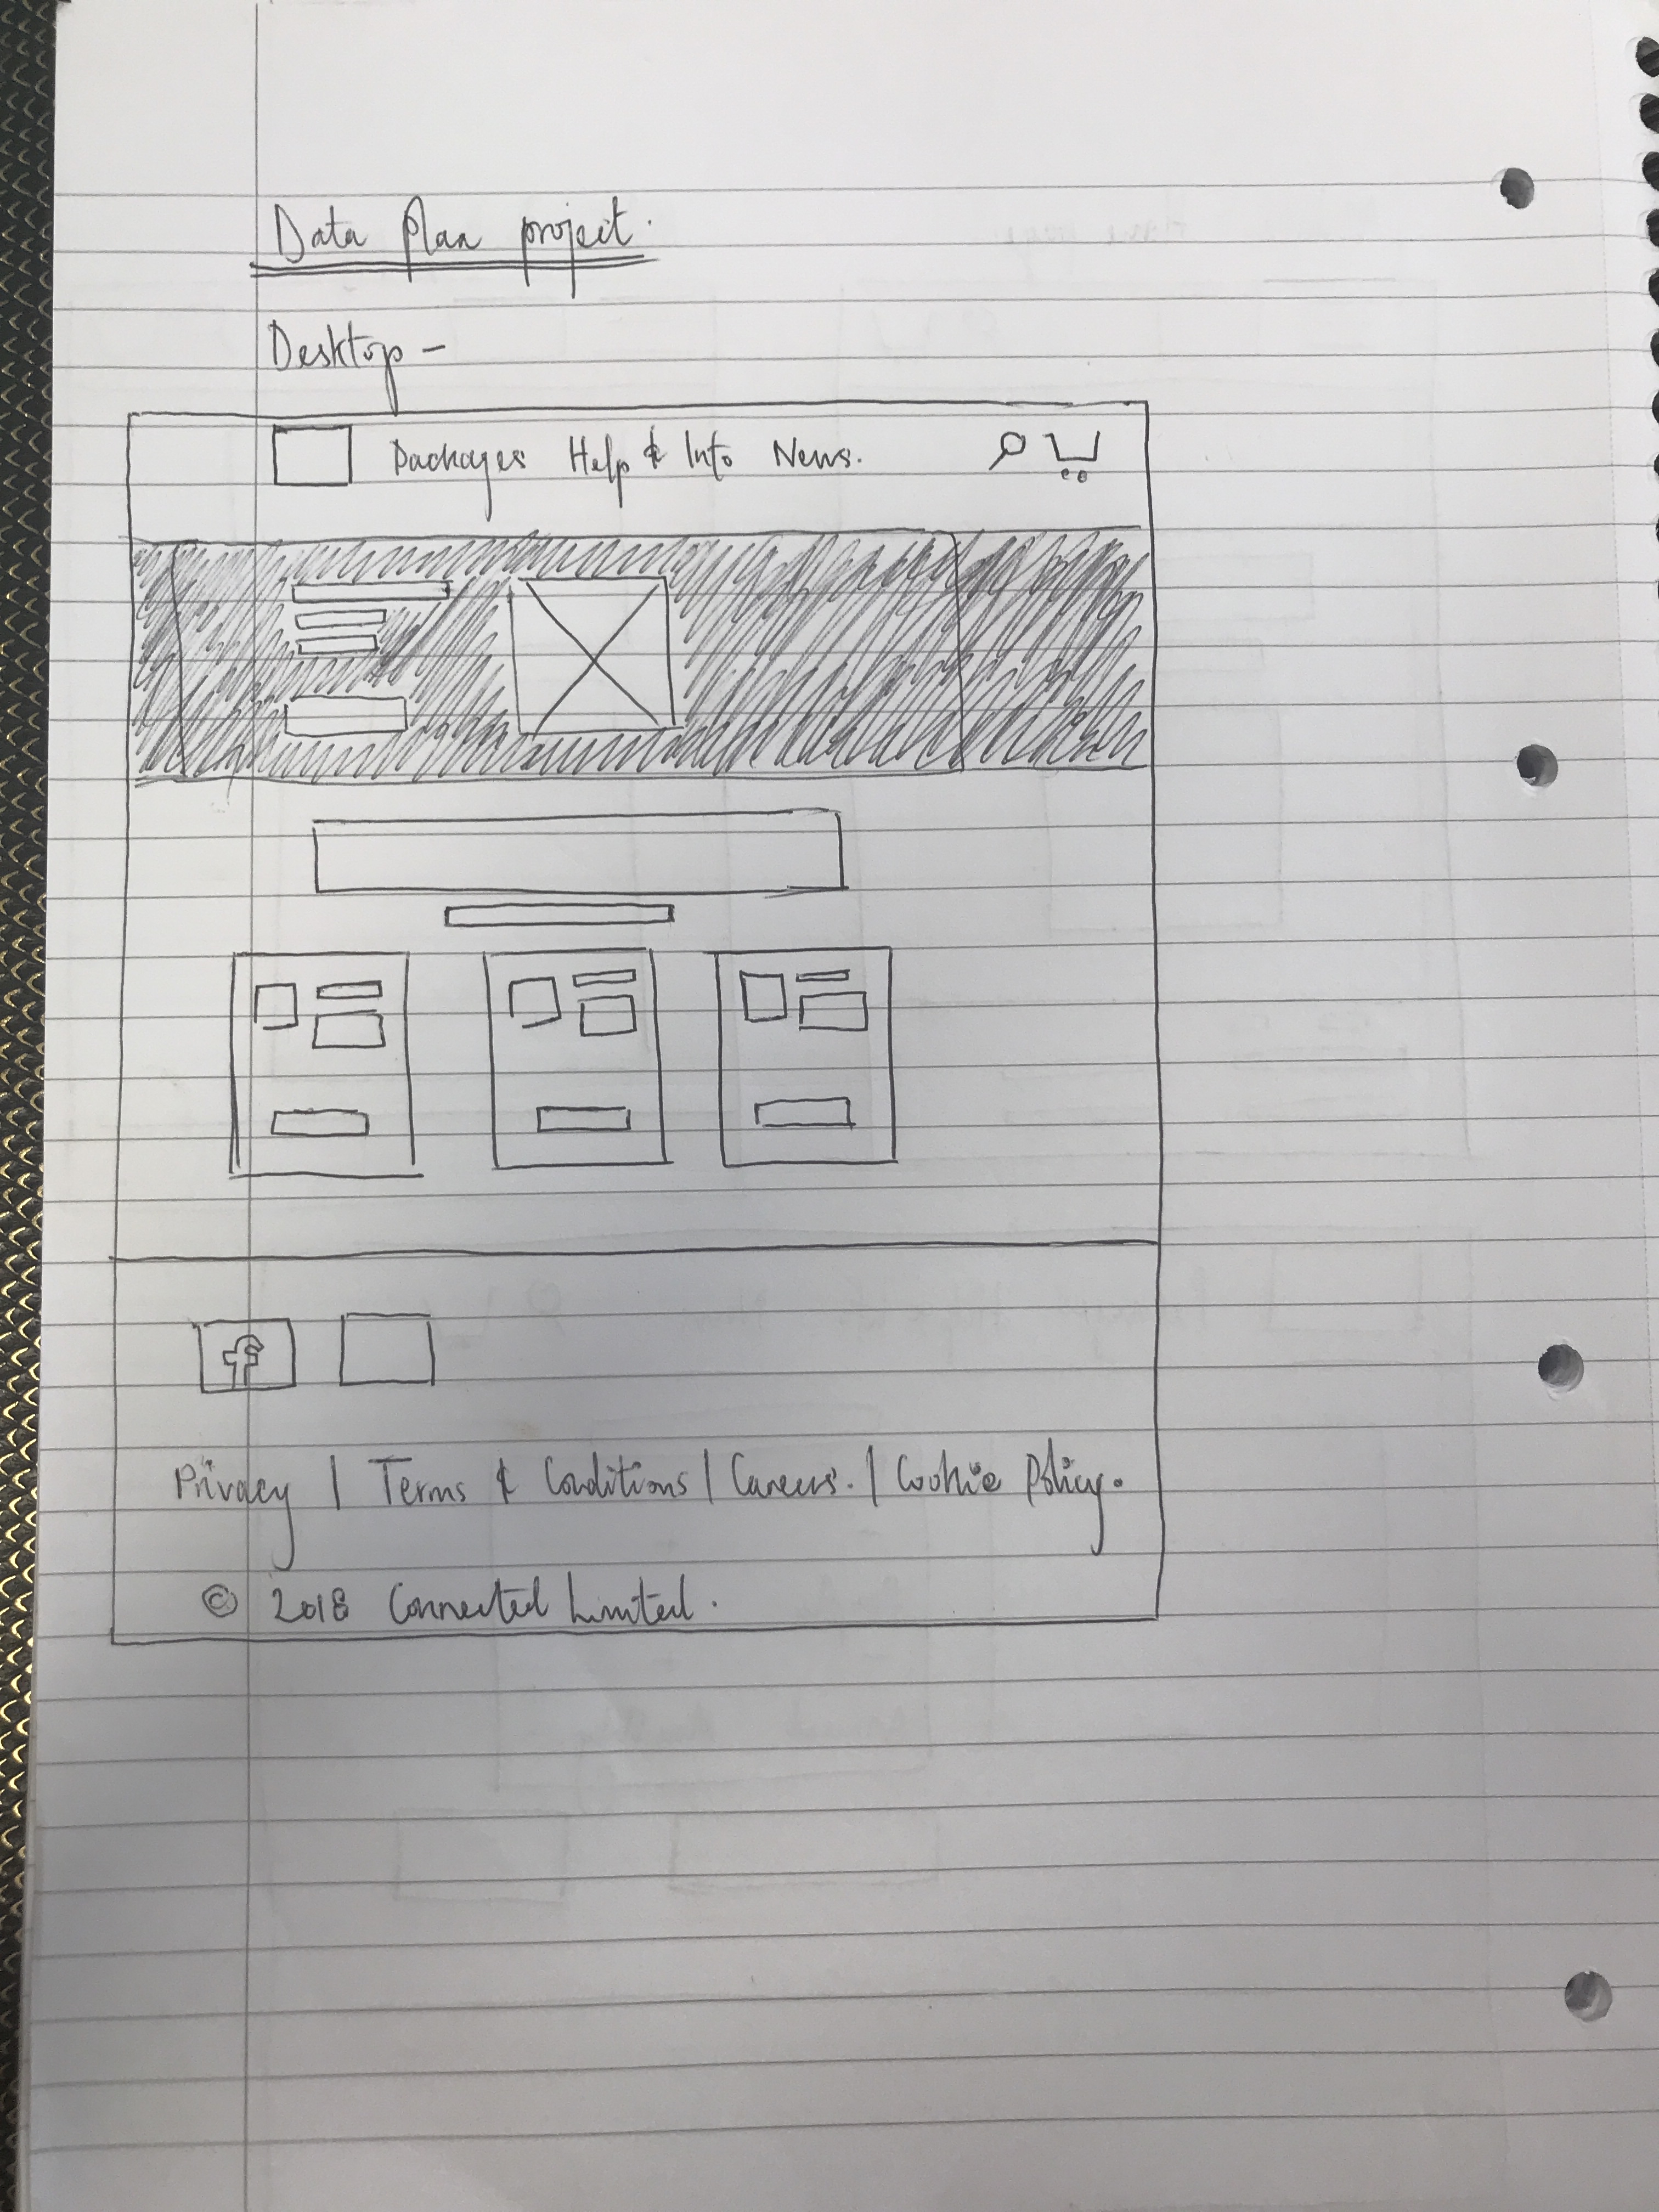 Data Plan project.
Desktop -
Packages Help & Info News.
f
Privacy | Terms & Conditions | Careers. | Cookie Policy.
© 2018 Connected Limited.